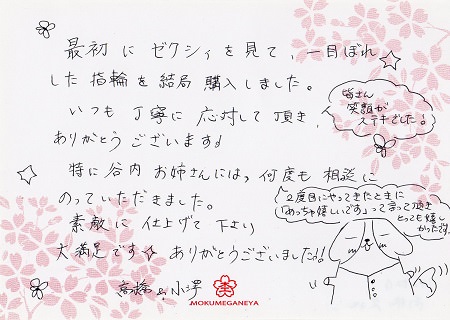 最初に ゼクシィを見て、一目ぼれ
した 指輪を 結局 購入しました。
いつも 丁寧に 応対して 頂き、
ありがとう ございます!
皆さん
笑顔が
ステキでした!
特に 谷内 お姉さんには、何度も 相談に
のっていただきました。
素敵に 仕上げて 下さり
大満足です☆ ありがとうございました!!
2度目にやってきたときに
「めっちゃ嬉しいです」って言って頂き
とっても嬉し
かったです。
高橋 & 小澤
MOKUMEGANEYA